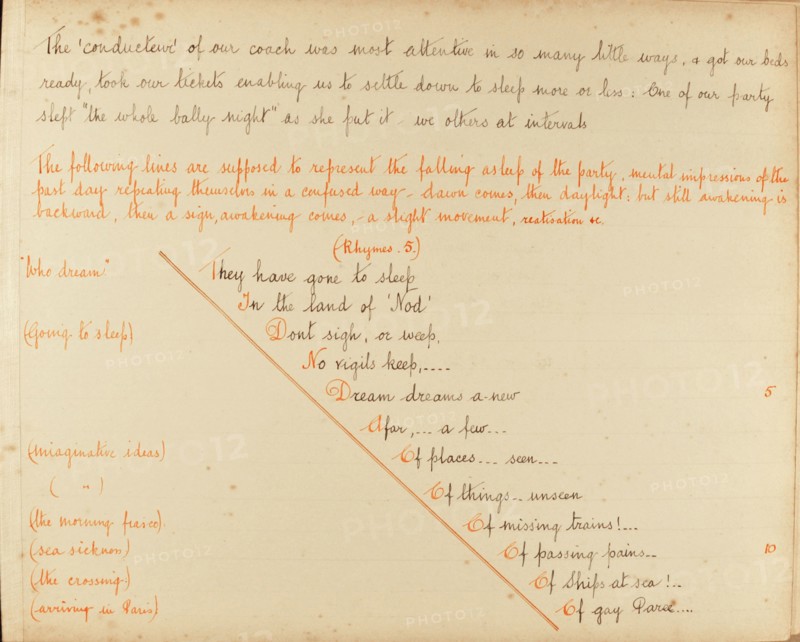 The 'conducteur' of our coach was most attentive in so many little ways, & got our beds
ready, took our tickets enabling us to settle down to sleep more or less: One of our party
slept "the whole bally night" as she put it - we others at intervals
The following lines are supposed to represent the falling asleep of the party, mental impressions of the
past day repeating themselves in a confused way - dawn comes, then daylight: but still awakening is
backward, then a sign, awakening comes, - a slight movement, realisation &c.
(Rhymes. 5.)
"Who dream" They have gone to sleep
In the land of 'Nod'
(Going to sleep) Dont sigh, or weep,
No vigils keep,....
Dream dreams a-new 5
Afar,... a few...
(imaginative ideas) Of places... seen...
( " ) Of things.. unseen
(the morning fiasco). Of missing trains!...
(sea sickness) Of passing pains.. 10
(the crossing.) Of Ships at sea!..
(arriving in Paris) Of gay Paree....
PHOTO12